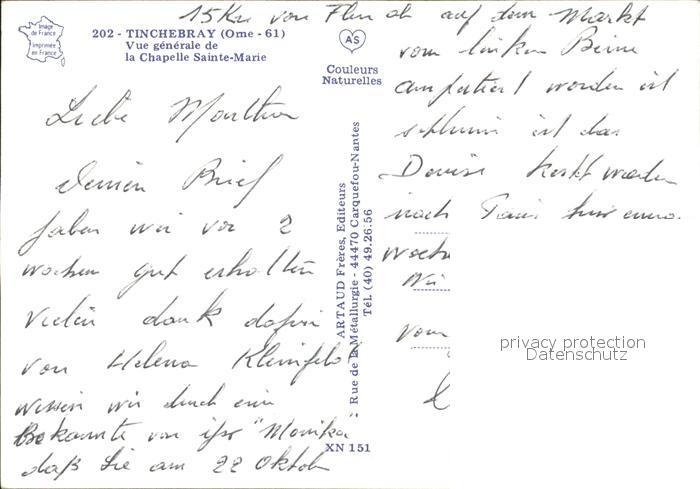 15 Km von Fleur ch auf dem Markt
Image
de France
Imprimée
en France
202 - TINCHEBRAY (Orne - 61)
Vue générale de
la Chapelle Sainte-Marie
AS
Couleurs
Naturelles
ARTAUD Frères, Editeurs
Rue de la Métallurgie - 44470 Carquefou-Nantes
Tél. (40) 49.26.56
XN 151
Liebe
Deinen Brief
haben wir vor 2
wochen gut erhalten
Vielen dank dafür
von Helena Kleinfeld
wissen wir durch eine
Bekannte von ihr "Monika"
daß Sie am 22 Oktob
vom linken Beine
amputiert worden ist
schlimm ist das
Denise
nach Paris
woch
Wir
vom
privacy protection
Datenschutz